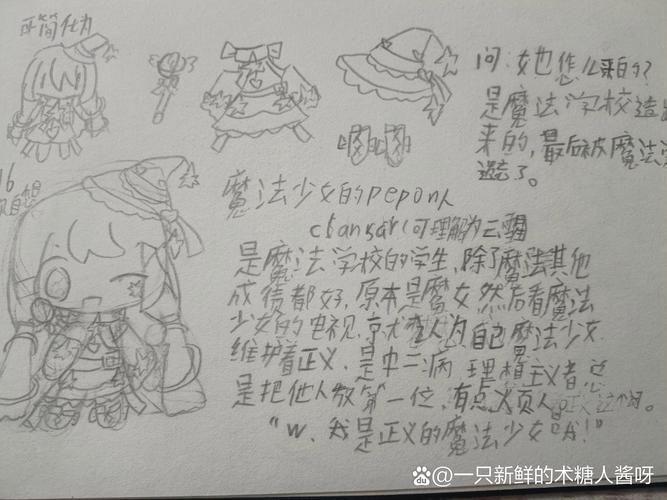 可简化为
问:她怎么来的?
是魔法学校造出
来的,最后被魔法
造了。
16
自想
魔法少女的pepon人
cтansar(可理解为云
是魔法学校的学生,除了魔法其他
成绩都好,原本是魔女然后看魔法
少女的电视,就认为自己魔法少女,
维护着正义,是中二病,理想主义者,总
是把他人放第一位,有点火页人。
"w,我是正义的魔法少女哦!"
@一只新鲜的术糖人酱呀